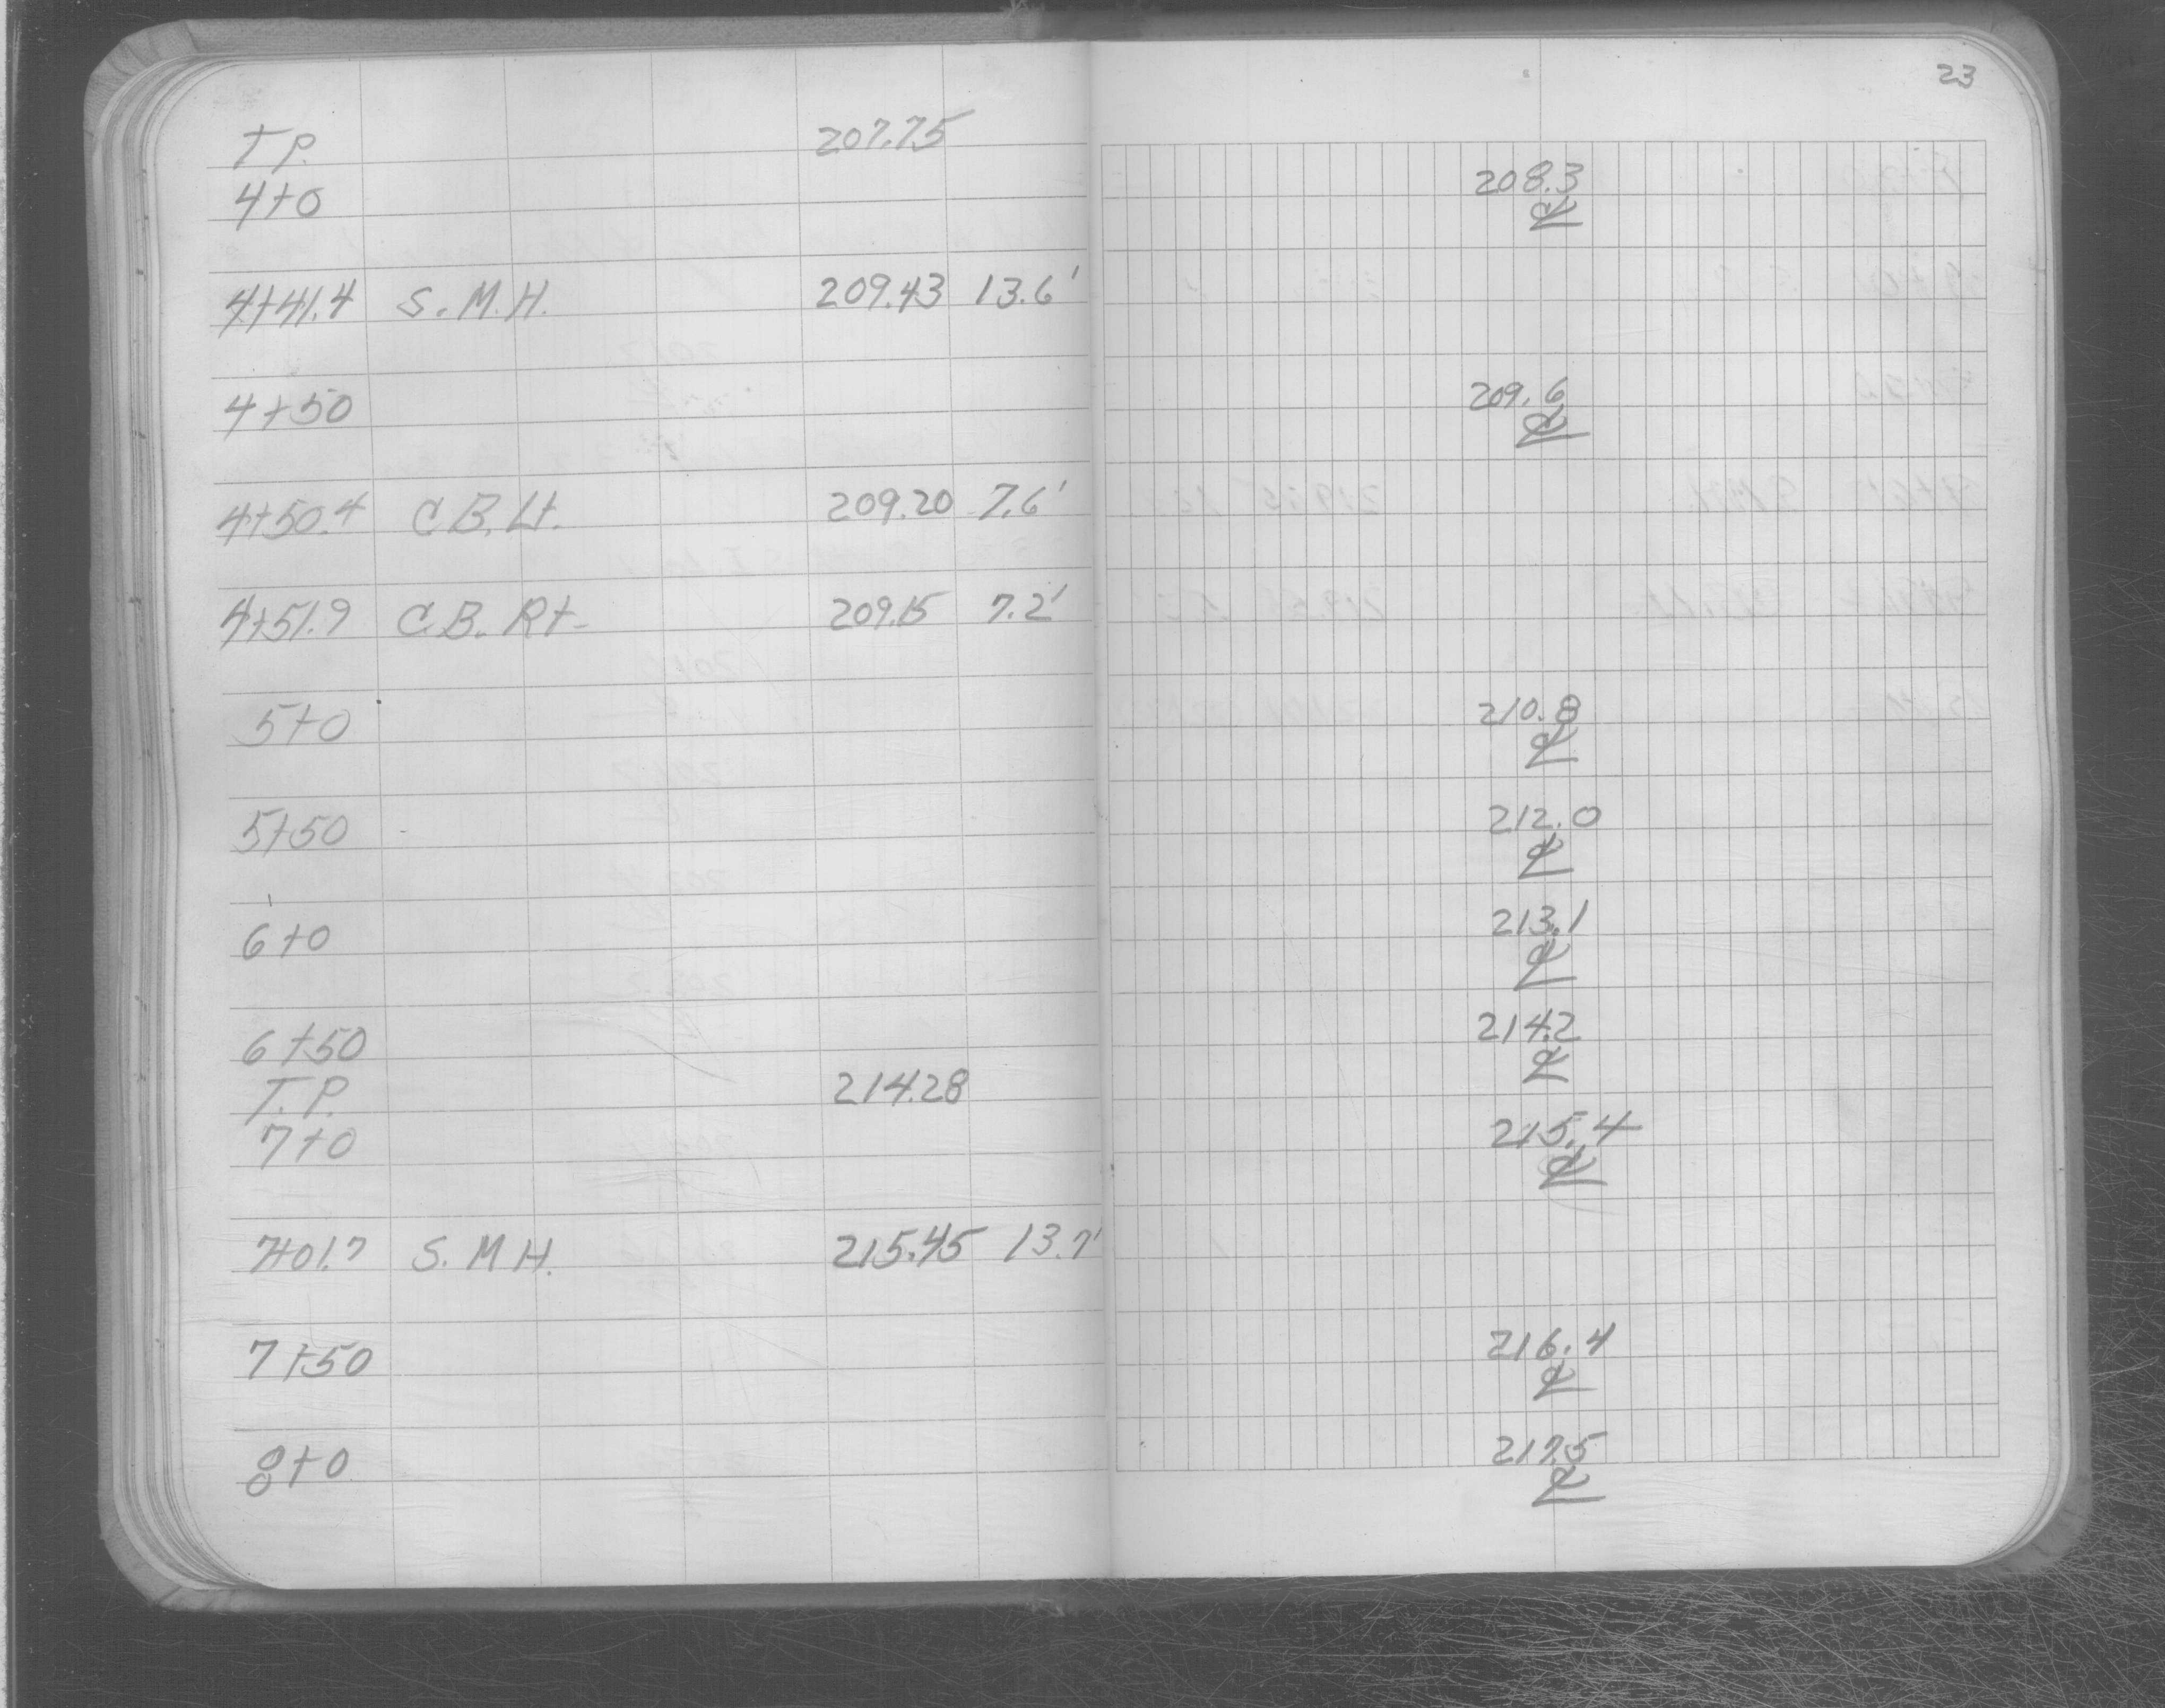 23
T.P. 207.75
4+0 208.3
℄
4+41.4 S.M.H. 209.43 13.6'
4+50 209.6
℄
4+50.4 C.B. Lt. 209.20 7.6'
4+51.9 C.B. Rt. 209.15 7.2'
5+0 210.8
℄
5+50 212.0
℄
6+0 213.1
℄
6+50 214.2
℄
T.P. 214.28
7+0 215.4
℄
7+01.7 S.M.H. 215.45 13.7'
7+50 216.4
℄
8+0 217.5
℄